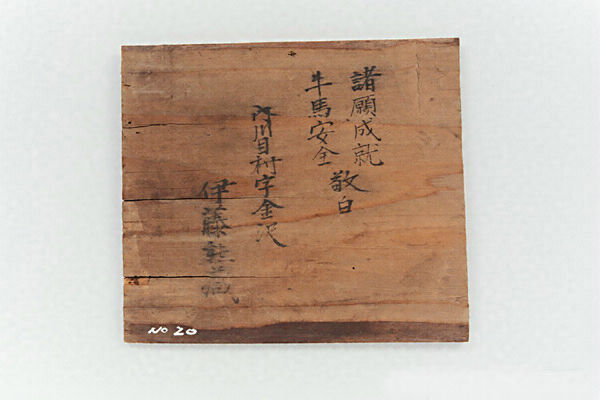 諸願成就
牛馬安全 敬白
川目村字金沢
伊藤熊蔵
NO 20